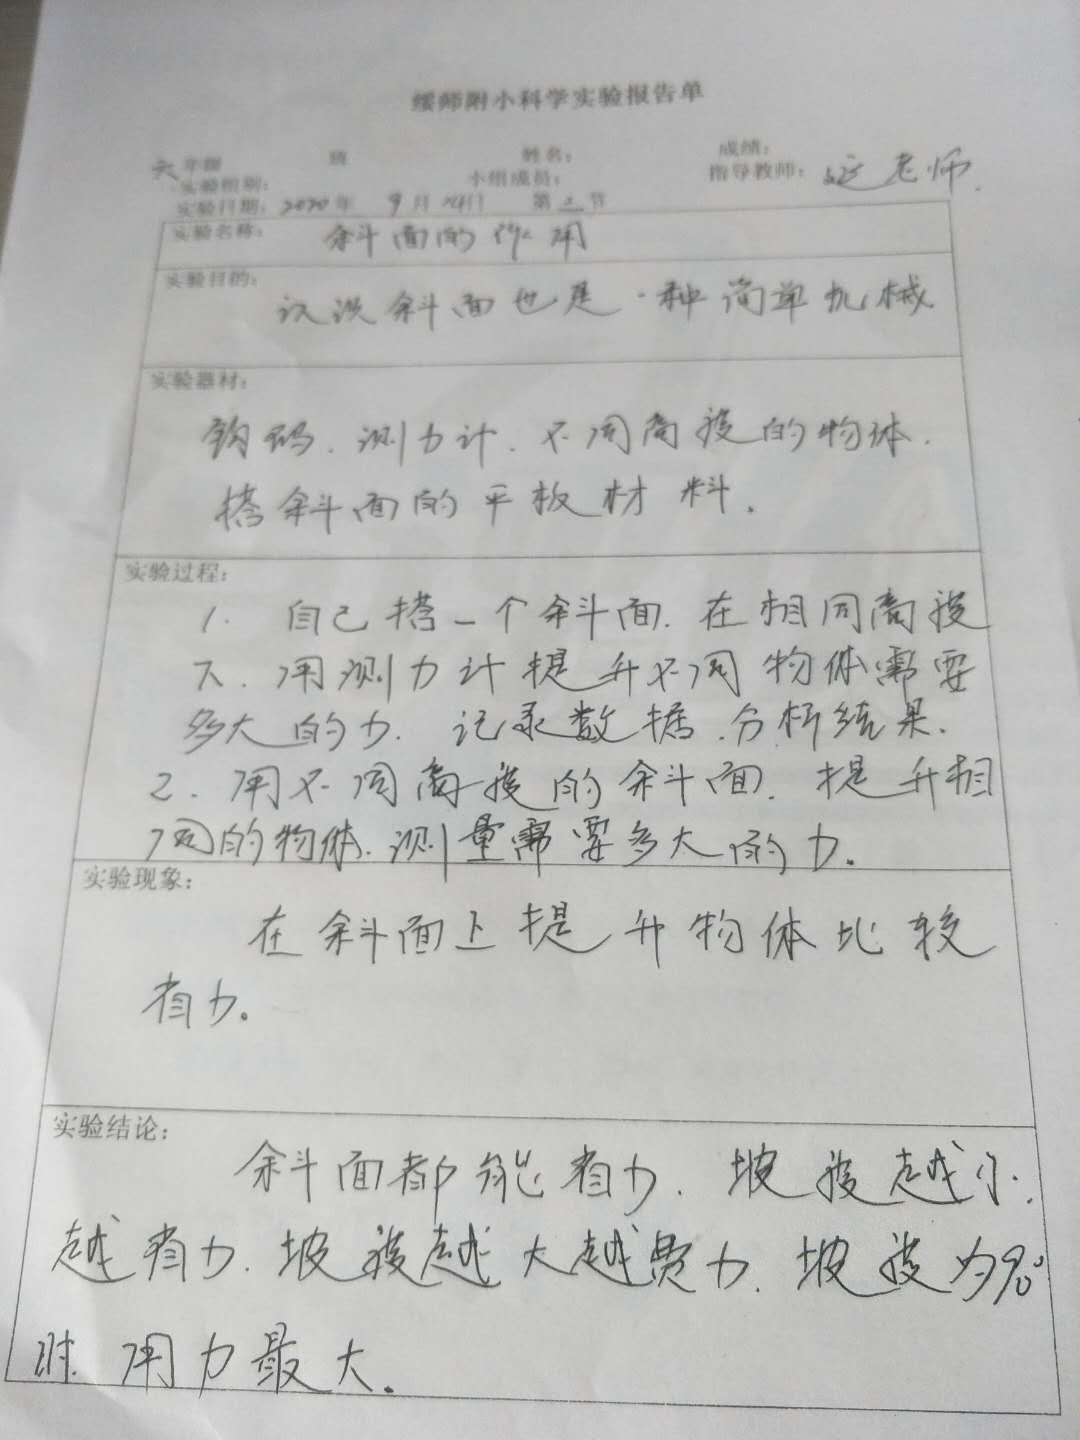 绥师附小科学实验报告单
六年级 班 姓名： 成绩：
实验组别： 小组成员： 指导教师： 延老师
实验日期：2020年 9月 日 第 节
实验名称： 斜面的作用
实验目的：
认识斜面也是一种简单机械
实验器材：
钩码、测力计、不同高度的物体、
搭斜面的平板材料。
实验过程：
1. 自己搭一个斜面，在相同高度
下，用测力计提升不同物体需要
多大的力，记录数据，分析结果。
2. 用不同高度的斜面，提升相
同的物体，测量需要多大的力。
实验现象：
在斜面上提升物体比较
省力。
实验结论：
斜面都能省力，坡度越小，
越省力，坡度越大越费力，坡度为90°
时，用力最大。